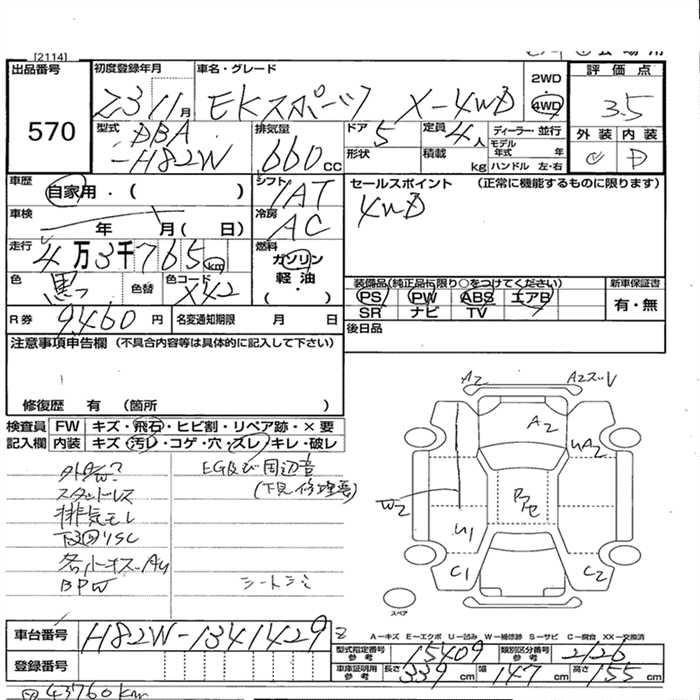 [2114]
出品番号 初度登録年月 車名・グレード 2WD 評価点
570 23 11月 EKスポーツ X-4WD 4WD 3.5
型式 DBA 排気量 ドア 5 定員 4人 ディーラー・並行 外装 内装
-H82W 660cc 形状 積載 kg モデル年式 年 ハンドル 左・右 C D
車歴 自家用・( ) シフト IAT セールスポイント (正常に機能するものに限ります)
車検 年 月( 日) 冷房 AC 4WD
走行 4万3千765km 燃料 ガソリン
色 黒 色替 色コード X42 軽油 ・( ) 装備品(純正品に限り○をつけてください) 新車保証書
PS PW ABS エアB 有・無
R券 9460円 名変通知期限 月 日 SR ナビ TV
注意事項申告欄 (不具合内容等は具体的に記入して下さい) 後日品
修復歴 有 (箇所 )
検査員 FW キズ・飛石・ヒビ割・リペア跡・×要
記入欄 内装 キズ・汚レ・コゲ・穴・スレ・キレ・破レ
EG及び周辺音
スタットレス (下見修理要)
排気モレ
下回りSC
BPW
A2 A2
A2 UA2
W2
U1
C1 C2
スペア
2 A-キズ E-エクボ U-凹み W-補修跡 S-サビ C-腐食 XX-交換済
車台番号 H82W-1341429 型式指定番号 参考 15409 類別区分番号 参考 2126
登録番号 車庫証明用 参考 長さ 339cm 幅 147cm 高さ 155cm
43760km